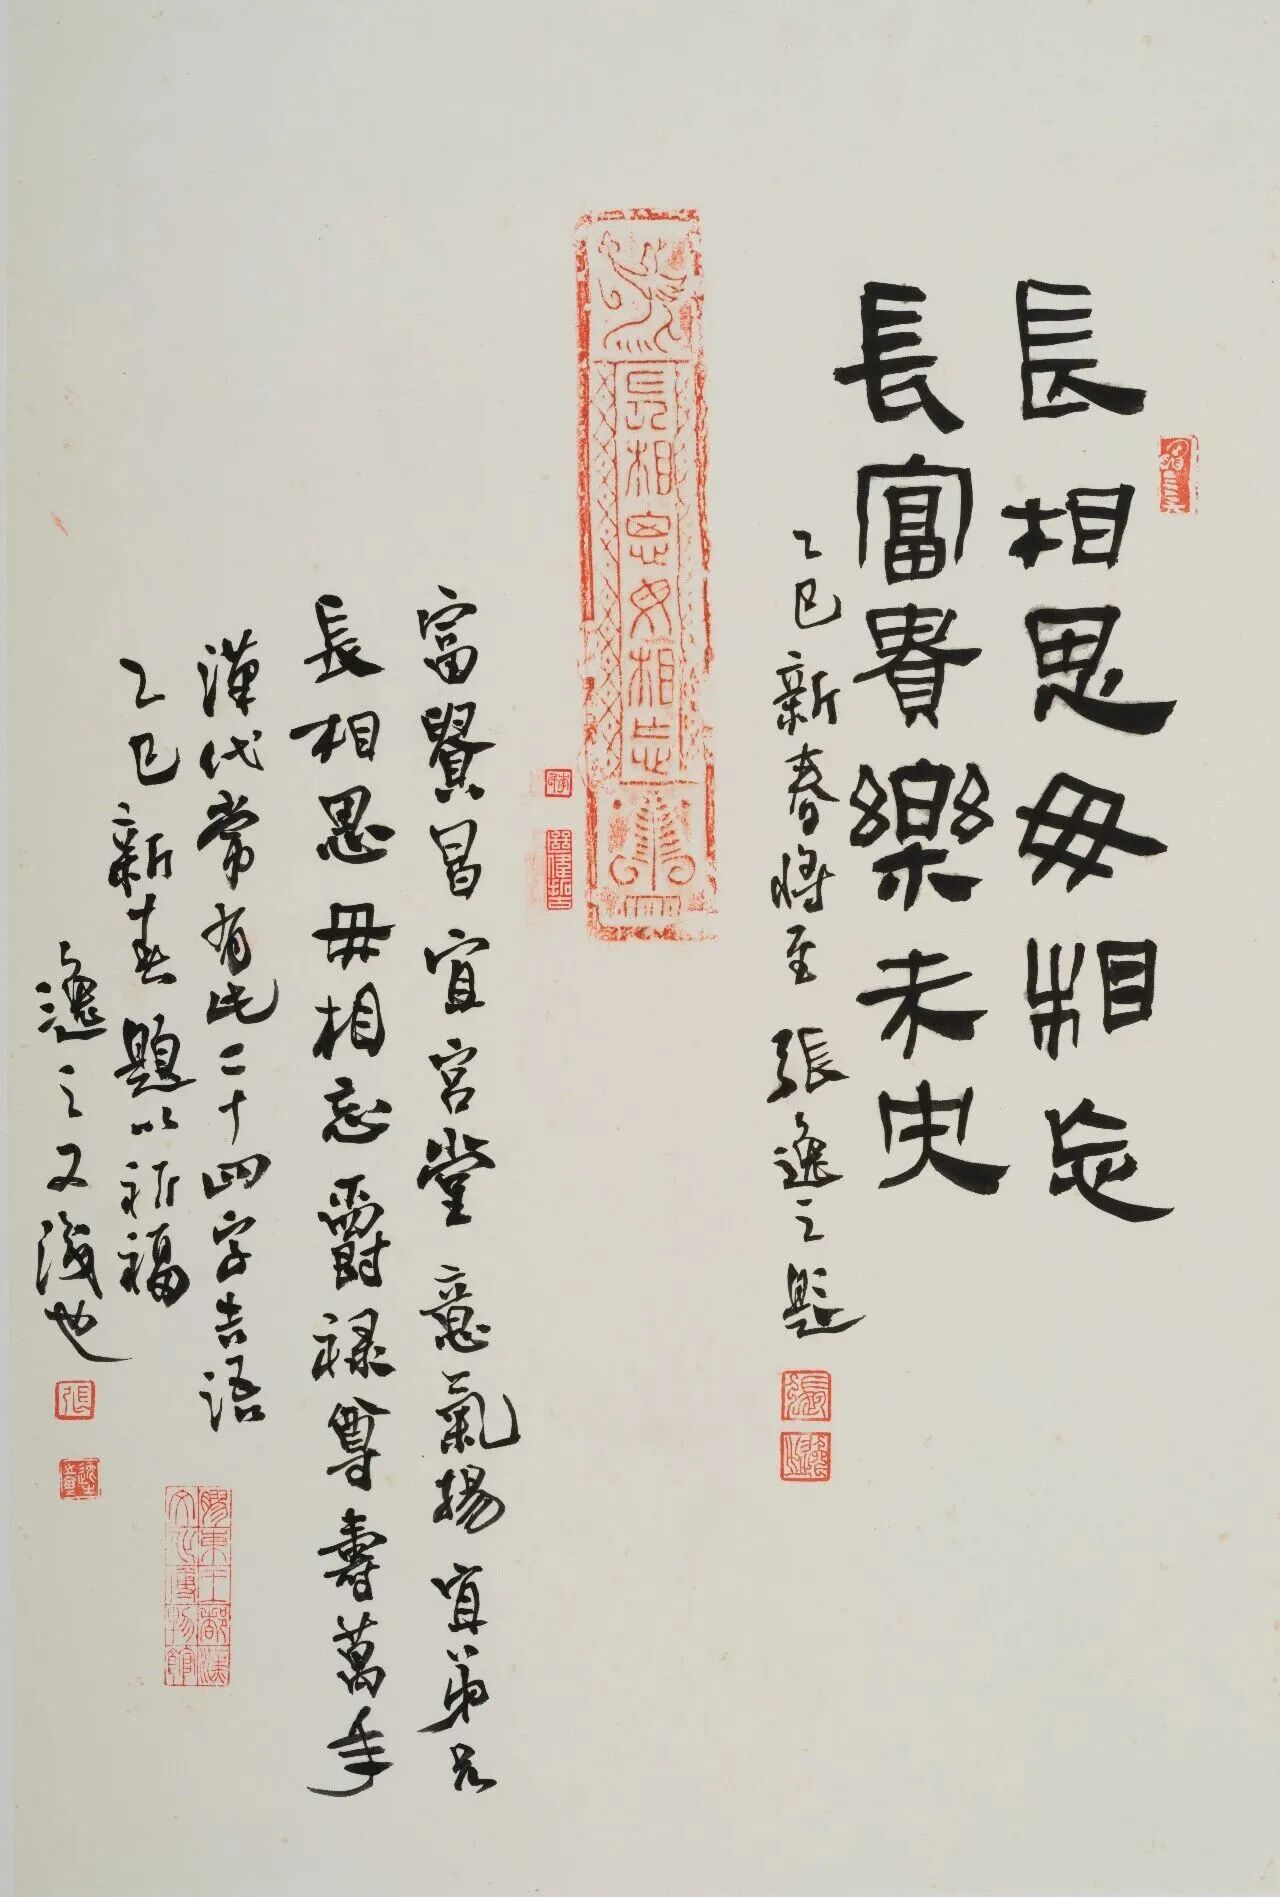 長相思毋相忘
長富貴樂未央
乙巳新春將至 張逸之題
長相思毋相忘
富貴昌宜宮堂意氣揚宜弟兄
長相思毋相忘爵祿尊壽萬年
漢代常有此二十四字吉語
乙巳新春題以祈福
逸之又識也
膠東王都漢
文化博物館